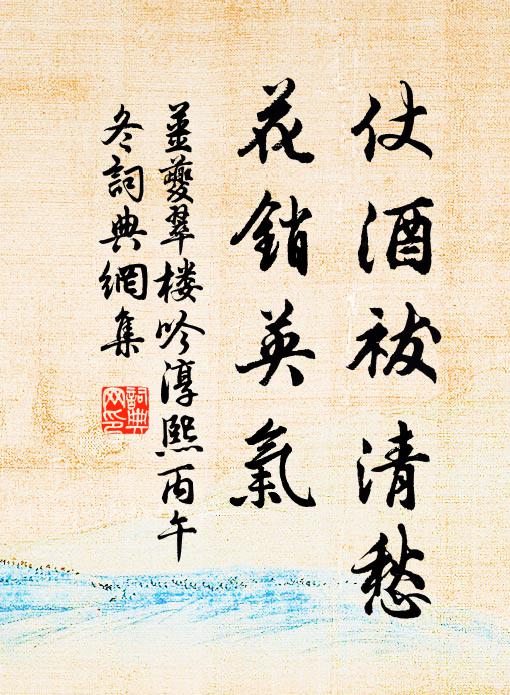 仗酒祓清愁
花銷英氣
姜夔翠楼吟淳熙丙午
冬詞典網集
詞典
网印